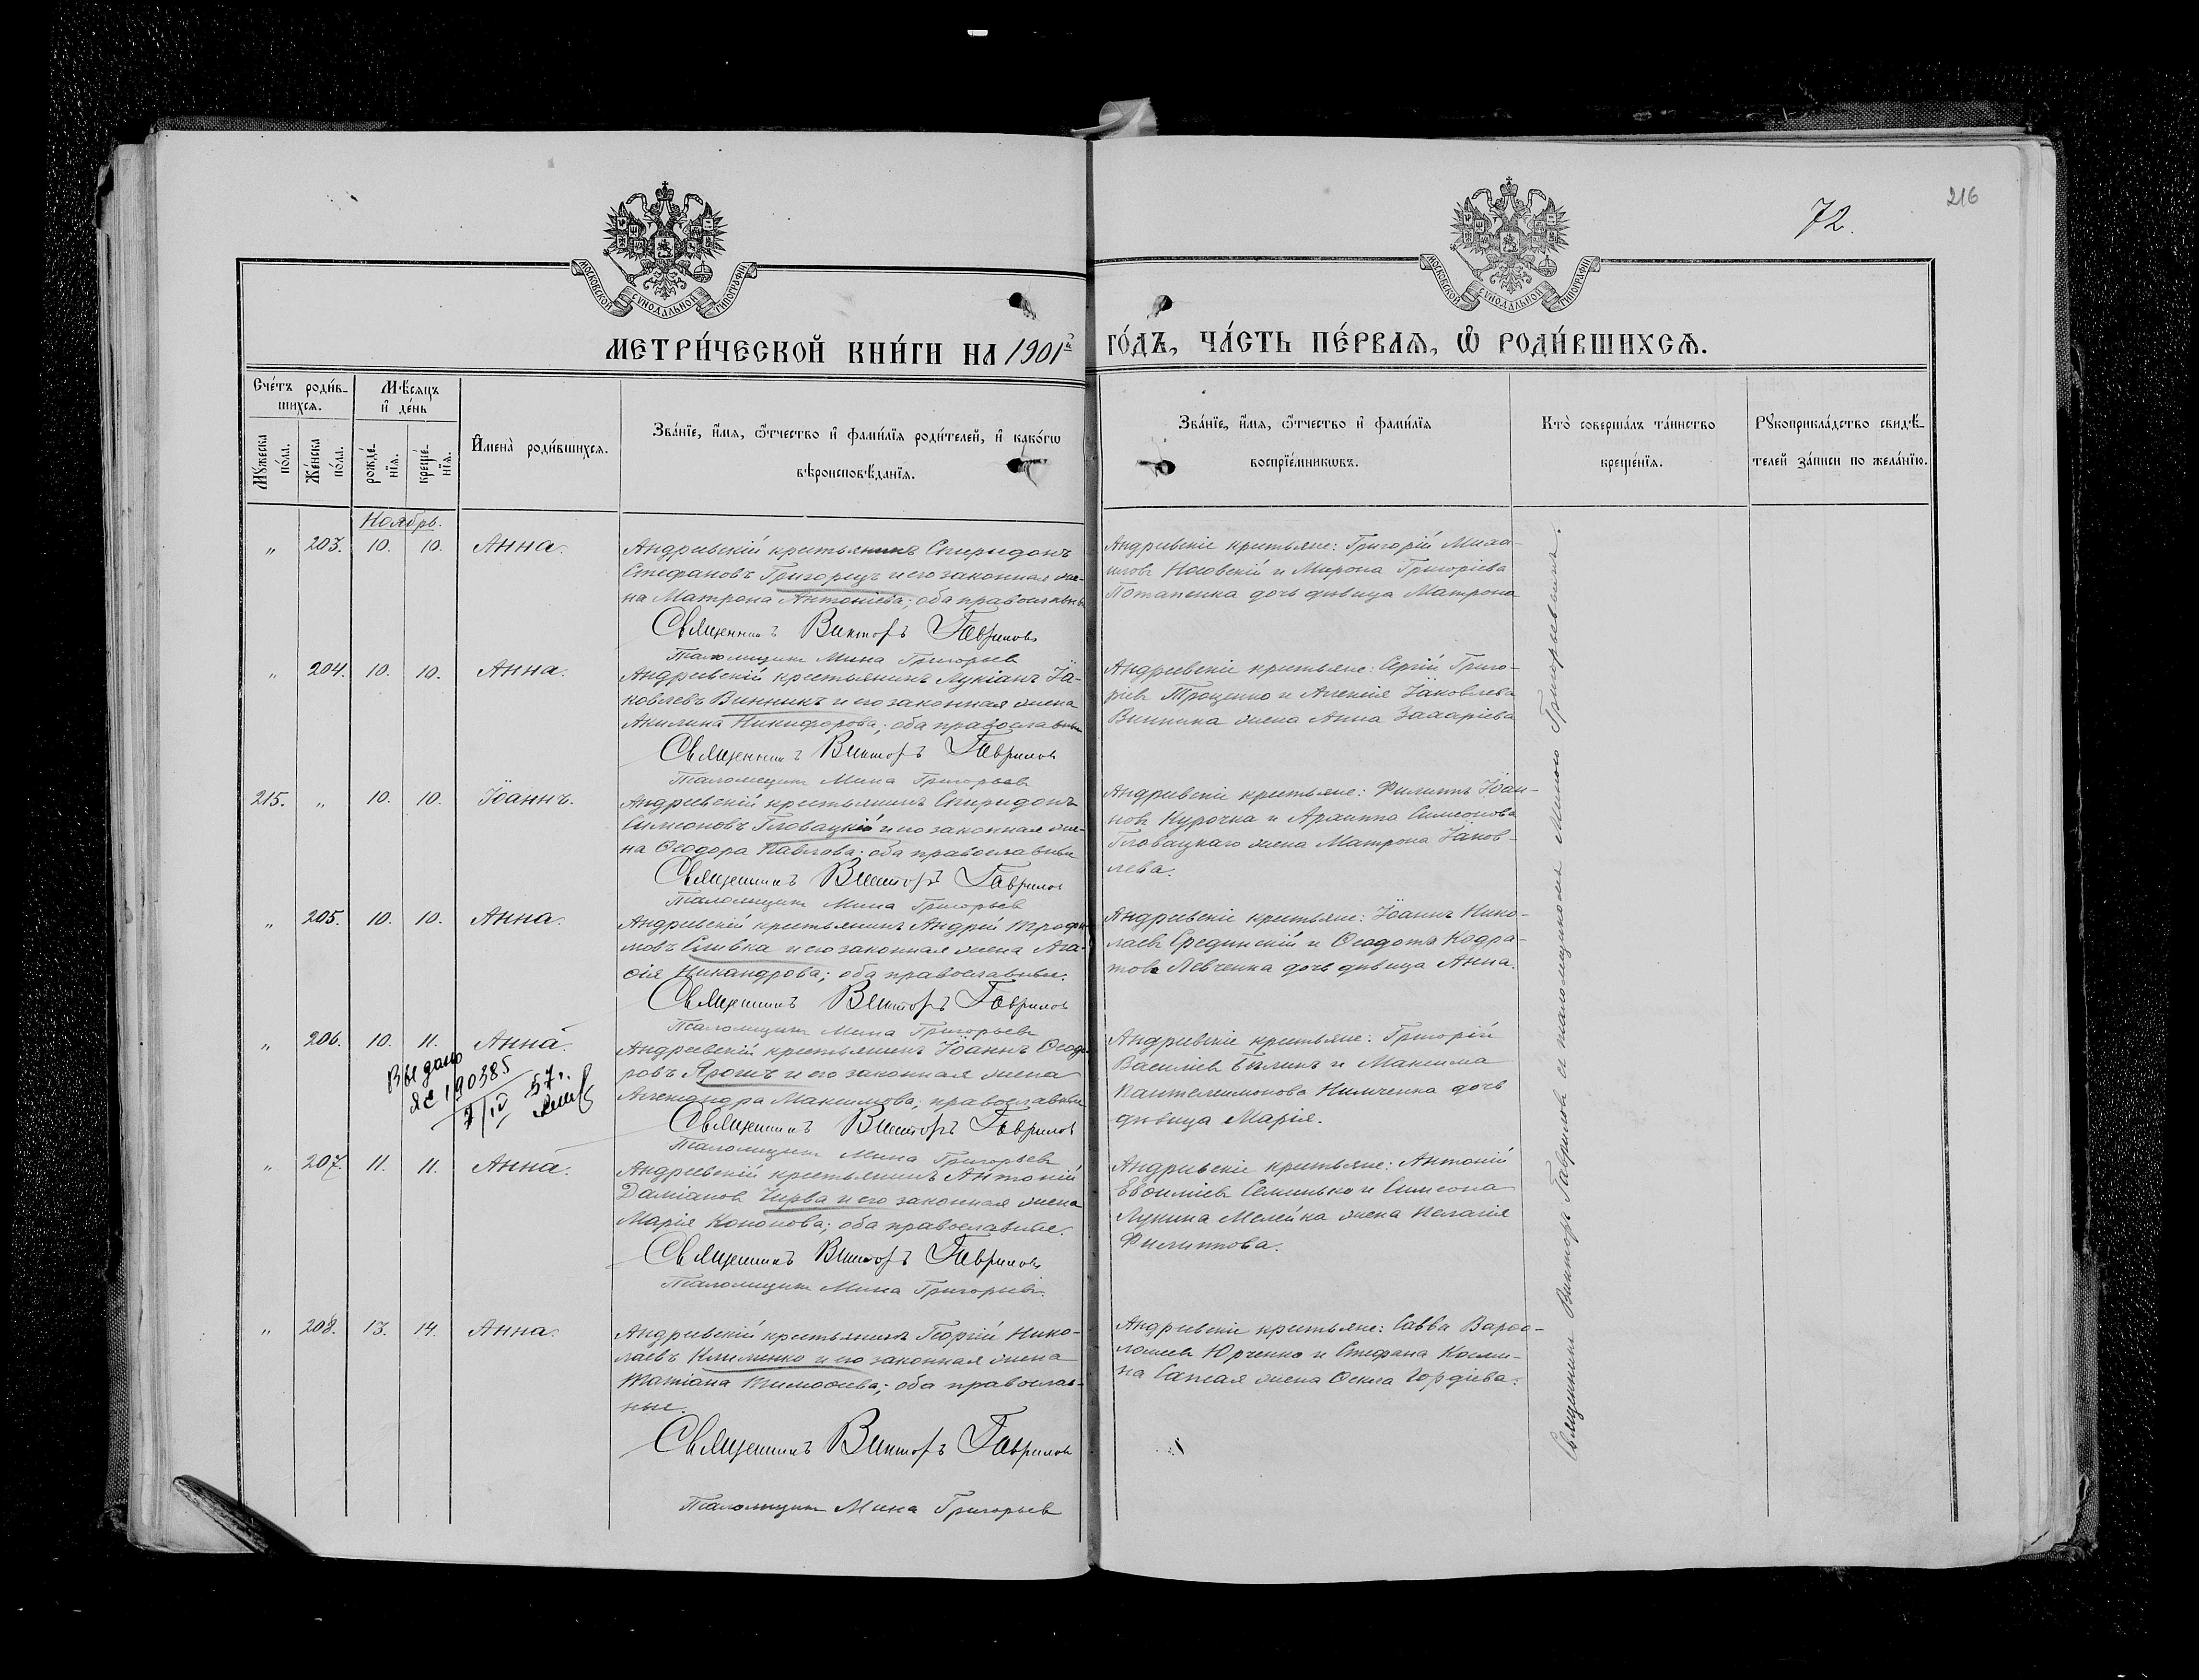 216
72.
МОСКОВСКОЙ СѴНОДАЛЬНОЙ ТИПОГРАФІИ
МОСКОВСКОЙ СѴНОДАЛЬНОЙ ТИПОГРАФІИ
МЕТРИ́ЧЕСКОЙ КНИ́ГИ НА 1901й ГО́ДЪ, ЧА́СТЬ ПЕ́РВАѦ, Ѡ҆ РОДИ́ВШИХСѦ.
Сче́тъ роди́в-
шихсѧ.
Мѣ́сѧцъ
и҆ де́нь
Мꙋ́жеска
по́ла.
Же́нска
по́ла.
рожде́-
нїѧ.
креще́-
нїѧ.
И҆мена̀ роди́вшихсѧ.
Зва́нїе, и҆́мѧ, ѻ҆́тчество и҆ фами́лїѧ роди́телей, и҆ како́гѡ
вѣроисповѣ́данїѧ.
Зва́нїе, и҆́мѧ, ѻ҆́тчество и҆ фами́лїѧ
воспрїе́мникѡвъ.
Кто̀ соверша́лъ та́инство
креще́нїѧ.
Рꙋкоприкла́дство свидѣ́-
телей за́писи по жела́нїю.
Ноябрь.
„ 203. 10. 10. Анна.
Андреевскій крестьянинъ Спиридонъ
Стефановъ Григорецъ и его законная же-
на Матрона Антоніева; оба православны
Священникъ Викторъ Гавриловъ
Псаломщикъ Мина Григорьевъ
Андреевскіе крестьяне: Григорій Миха-
иловъ Носовскій и Мирона Григоріева
Потапенка дочь дѣвица Матрона
„ 204. 10. 10. Анна.
Андреевскій крестьянинъ Лукіанъ Іа-
ковлевъ Винникъ и его законная жена
Акилина Никифорова; оба православны
Священникъ Викторъ Гавриловъ
Псаломщикъ Мина Григорьевъ
Андреевскіе крестьяне: Сергій Григо-
ріевъ Троценко и Алексія Іаковлева
Винника жена Анна Захаріева
215. „ 10. 10. Іоаннъ.
Андреевскій крестьянинъ Спиридонъ
Симеоновъ Гловацкій и его законная же-
на Ѳеодора Павлова; оба православны
Священникъ Викторъ Гавриловъ
Псаломщикъ Мина Григорьевъ
Андреевскіе крестьяне: Филиппъ Іоан-
новъ Курочка и Архиппа Симеонова
Гловацкаго жена Матрона Іаков-
лева.
„ 205. 10. 10. Анна.
Андреевскій крестьянинъ Андрей Трофи
мовъ Сливка и его законная жена Ага-
ѳія Никандрова; оба православны.
Священникъ Викторъ Гавриловъ
Псаломщикъ Мина Григорьевъ
Андреевскіе крестьяне: Іоаннъ Нико-
лаевъ Срединскій и Ѳеодота Кодра-
това Левченка дочь дѣвица Анна.
„ 206. 10. 11. Анна.
Выдано
ЯЕ 190385
7/IV 57г.
Андреевскій крестьянинъ Іоаннъ Ѳеодо-
ровъ Ярошъ и его законная жена
Александра Максимова; православны
Священникъ Викторъ Гавриловъ
Псаломщикъ Мина Григорьевъ
Андреевскіе крестьяне: Григорій
Василіевъ Бѣликъ и Максима
Пантелеимонова Нимченка дочь
дѣвица Марія.
„ 207. 11. 11. Анна.
Андреевскій крестьянинъ Антоній
Даміановъ Чирва и его законная жена
Марія Кононова; оба православные.
Священникъ Викторъ Гавриловъ
Псаломщикъ Мина Григорьевъ.
Андреевскіе крестьяне: Антоній
Евѳиміевъ Семинько и Симеона
Лукина Мелейка жена Пелагія
Филиппова.
„ 208. 13. 14. Анна.
Андреевскій крестьянинъ Георгій Нико-
лаевъ Клименко и его законная жена
Татіана Тимоѳеева; оба православ-
ные.
Священникъ Викторъ Гавриловъ
Псаломщикъ Мина Григорьевъ
Андреевскіе крестьяне: Савва Варѳо-
ломеевъ Юрченко и Стефана Косми-
на Сапсая жена Ѳекла Гордіева.
Священникъ Викторъ Гавриловъ съ псаломщикомъ Миною Григорьевымъ.